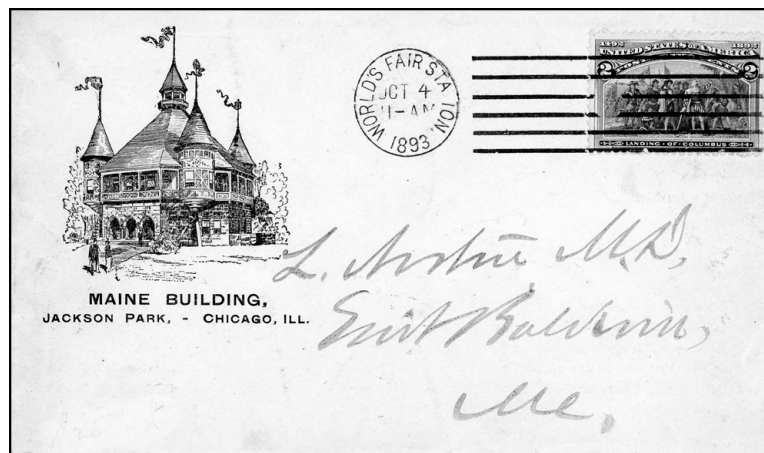 WORLD'S FAIR STATION,
OCT 4
11-AM
1893
1492 1892
UNITED STATES OF AMERICA
2 2
LANDING·OF·COLUMBUS
MAINE BUILDING,
JACKSON PARK, - CHICAGO, ILL.
L. Norton M.D,
East Baldwin,
Me.